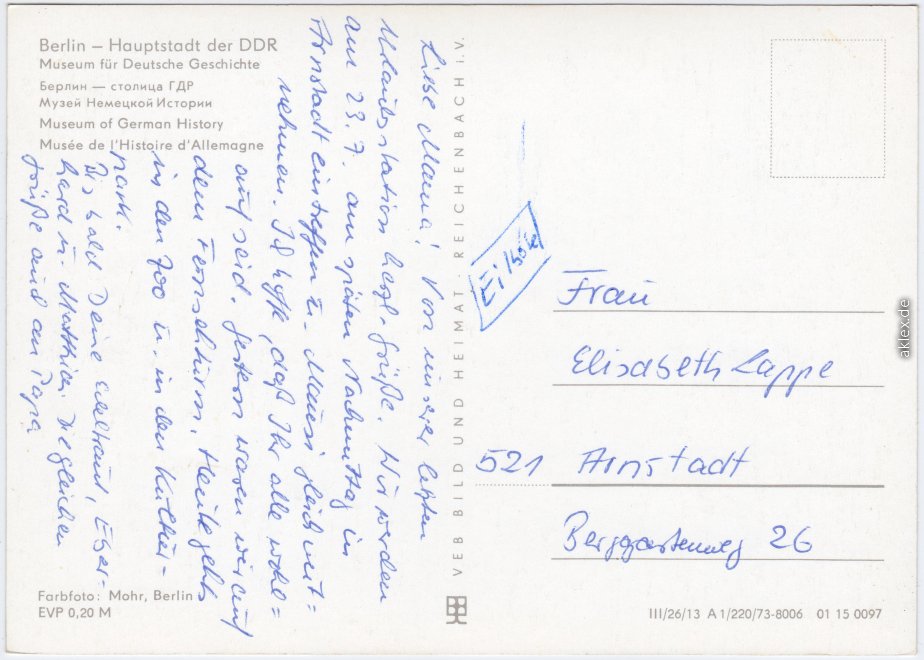 Berlin – Hauptstadt der DDR
Museum für Deutsche Geschichte
Берлин — столица ГДР
Музей Немецкой Истории
Museum of German History
Musée de l'Histoire d'Allemagne
Liebe Mama! Von unserer letzten
Urlaubsstation herzl. Grüße. Wir werden
am 23.7. am späten Nachmittag in
Arnstadt eintreffen u. Mausi gleich mit=
nehmen. Ich hoffe, daß Ihr alle wohl=
auf seid. Gestern waren wir auf
dem Fernsehturm. Heute gehts
in den Zoo u. in den Kultur-
park.
Bis bald Deine Edeltraud, Eber-
hard u. Matthias. Die gleichen
Grüße auch an Papa
Farbfoto: Mohr, Berlin
EVP 0,20 M
VEB BILD UND HEIMAT · REICHENBACH i.V.
Eilbote
Frau
Elisabeth Lappe
521 Arnstadt
Berggartenweg 26
III/26/13 A 1/220/73-8006 01 15 0097
aklex.de